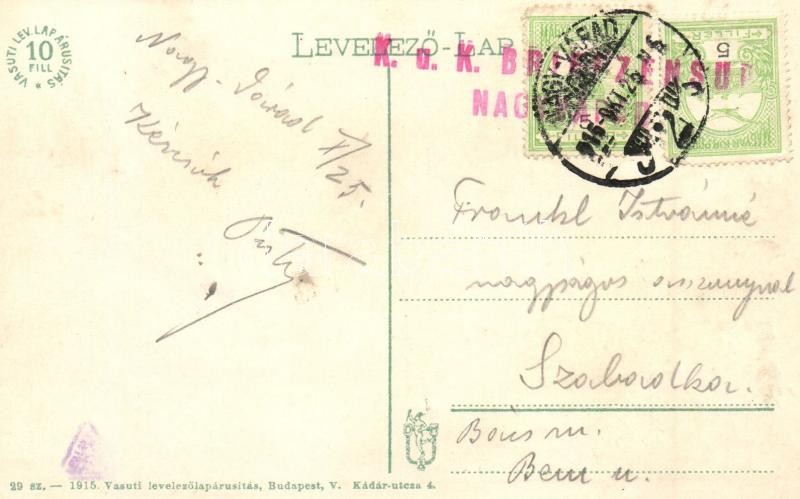 VASUTI LEV. LAP ÁRUSITÁS
10
FILL
LEVELEZŐ-LAP
K. u. K. BRIEFZENSUR
NAGYVÁRAD
NAGYVÁRAD
915 OKT. 26
MAGYAR KIR. POSTA
5
FILLÉR
5
Nagy-Várad X/25.
Frankl Istvánné
nagyságos asszonynak
Szabadka.
Bács m.
Bem u.
29 sz. — 1915. Vasuti levelezőlapárusitás, Budapest, V. Kádár-utcza 4.